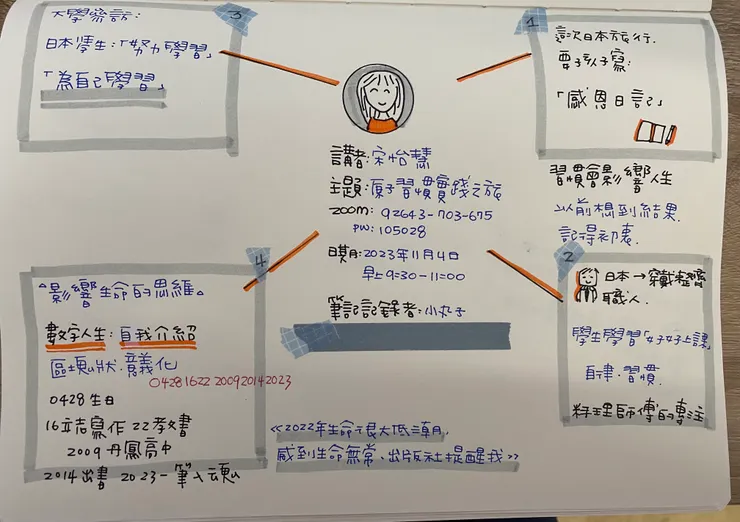 講者:宋怡慧
主題:原子習慣實踐之旅
zoom: 92643-703-675
PW: 105028
日期:2023年11月4日
早上9:30-11:00
筆記記錄者:小丸子
1
這次日本旅行.
要孩子寫:
「感恩日記」
習慣會影響人生
以前想到結果.
記得初衷.
2
日本→
職人.
學生學習「好好上課」
自律.習慣.
料理師傅的專注
3
大學參訪:
日本學生:「努力學習」
「為自己學習」
4
△影響生命的思維△
數字人生:自我介紹
區塊狀.意義化
04281622 200920142023
0428生日
16立志寫作 22教書
2009丹鳳高中
2014出書 2023一筆入魂
《2022年生命很大低潮期,
感到生命無常、出版社提醒我》